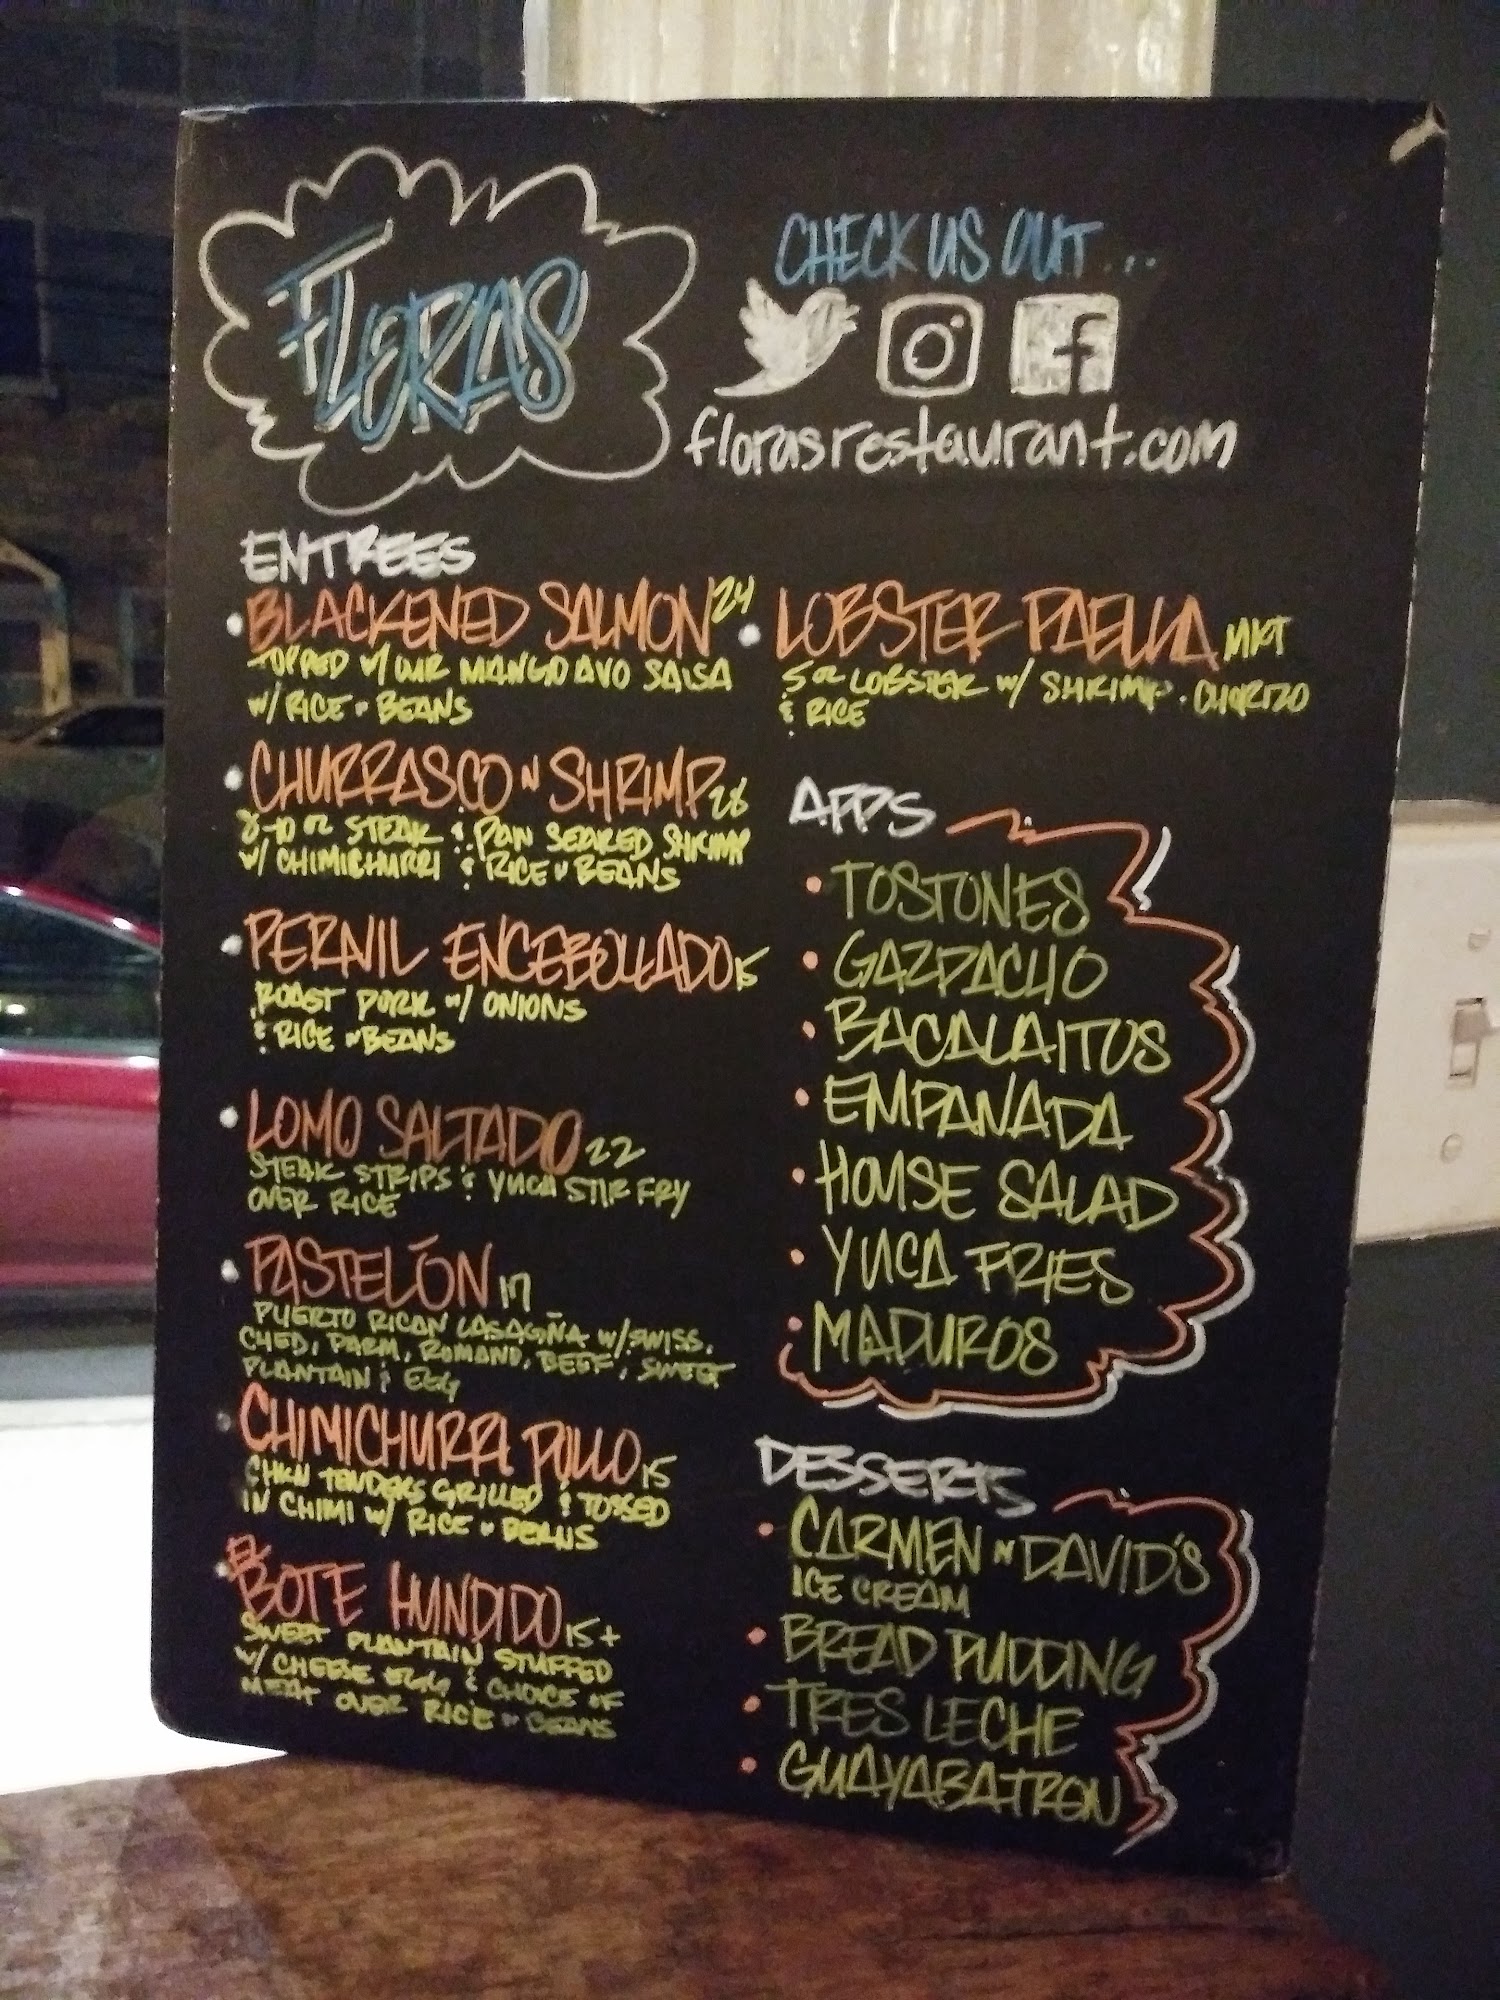 FLORAS
CHECK US OUT...
florasrestaurant.com
ENTREES
BLACKENED SALMON 24
TOPPED W/ OUR MANGO AVO SALSA
W/ RICE N BEANS
CHURRASCO N SHRIMP 26
8-10 OZ STEAK & PAN SEARED SHRIMP
W/ CHIMICHURRI & RICE N BEANS
PERNIL ENCEBOLLADO 15
ROAST PORK W/ ONIONS
& RICE N BEANS
LOMO SALTADO 22
STEAK STRIPS & YUCA STIR FRY
OVER RICE
PASTELÓN 17
PUERTO RICAN LASAGÑA W/ SWISS,
CHED, PARM, ROMANO, BEEF, SWEET
PLANTAIN & EGG
CHIMICHURRI POLLO 15
CHKN TENDERS GRILLED & TOSSED
IN CHIMI W/ RICE N BEANS
EL
BOTE HUNDIDO 15+
SWEET PLANTAIN STUFFED
W/ CHEESE EGG & CHOICE OF
MEAT OVER RICE N BEANS
LOBSTER PAELLA MKT
5 OZ LOBSTER W/ SHRIMP · CHORIZO
& RICE
APPS
TOSTONES
GAZPACHO
BACALAITOS
EMPANADA
HOUSE SALAD
YUCA FRIES
MADUROS
DESSERTS
CARMEN N DAVID'S
ICE CREAM
BREAD PUDDING
TRES LECHE
GUAYABATRON